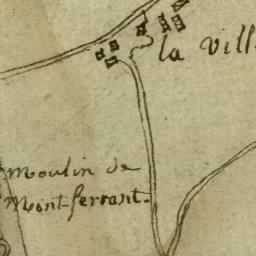 la Vill
Moulin de
Mont-ferrant.